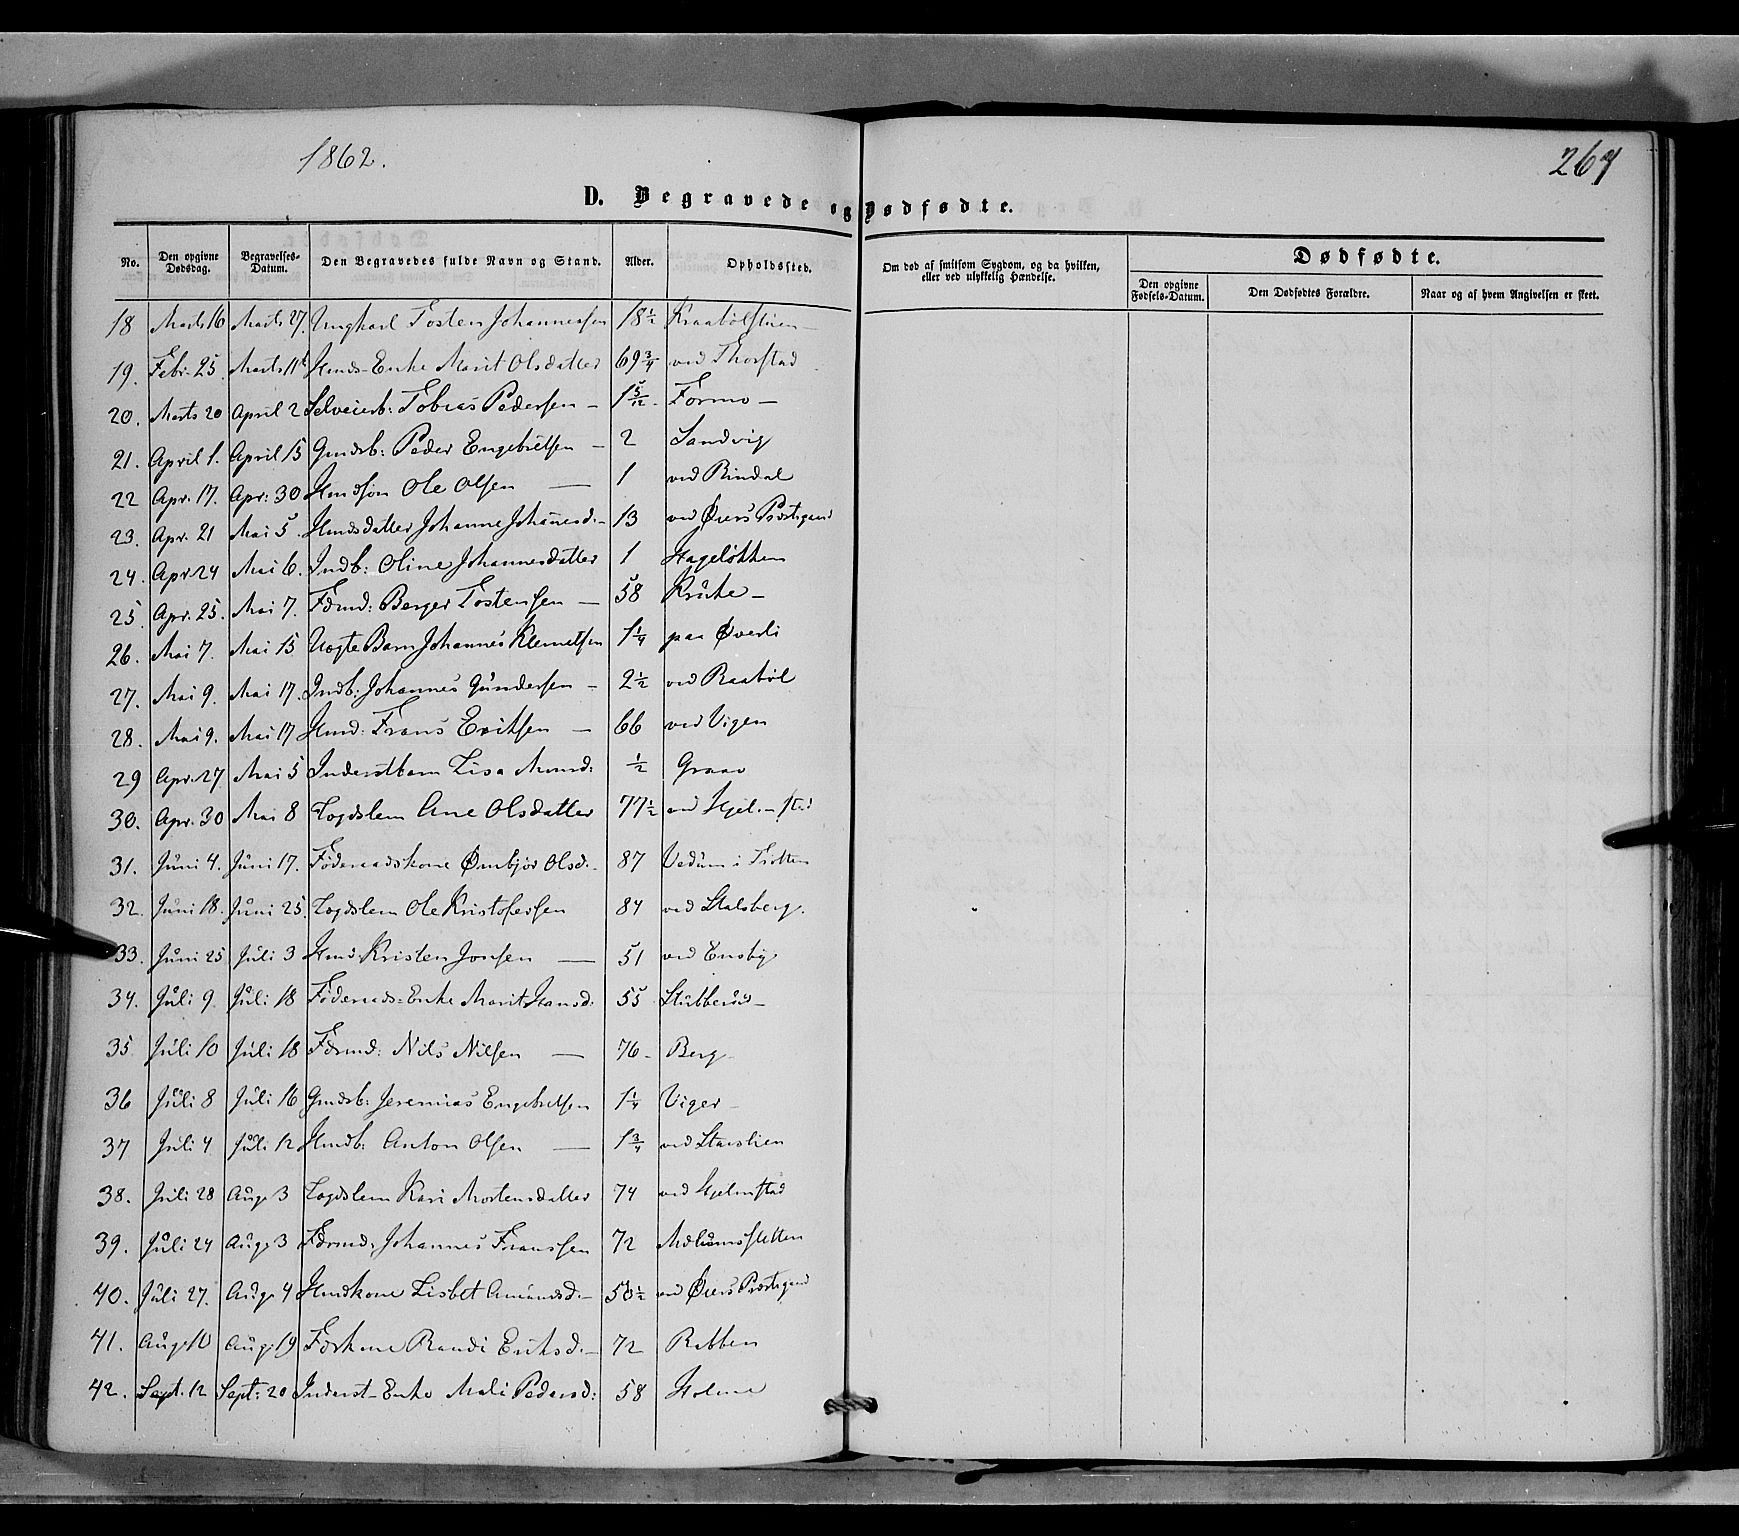 1862.
267
D. Begravede og Dødfødte.
No. Den opgivne Dødsdag. Begravelses-Datum. Den Begravedes fulde Navn og Stand. Alder. Opholdssted. Om død af smitsom Sygdom, og da hvilken, eller ved ulykkelig Hændelse. Dødfødte. Den opgivne Fødsels-Datum. Den Dødfødtes Forældre. Naar og af hvem Angivelsen er skeet.
18 Marts 16 Marts 27. Ungkarl Tosten Johannessen 18 1/2 Kraabølstuen
19. Febr. 25. Marts 11t Hmds-Enke Marit Olsdatter 69 3/4 ved Thorstad
20. Marts 20 April 2 Selveierb: Tobias Pedersen – 1 5/12 Formo –
21. April 1. April 15 Gmdsb: Peder Engebretsen – 2 Sandvig
22 Apr. 17. Apr: 30 Hmdsøn Ole Olsen — 1 ved Rindal
23. Apr. 21 Mai 5. Hmdsdatter Johanne Johanesd: – 13 ved Øiers Præstegaard
24. Apr 24 Mai 6. Indb: Oline Johannesdatter 1 Hageløkken
25. Apr. 25. Mai 7. Førmd: Berger Tostensen — 58 Kruke –
26. Mai 7. Mai 15 Uægte Barn Johannes Klemetsen 1 1/4 paa Øverli
27. Mai 9. Mai 17. Indb: Johannes Gundersen – 2 1/2 ved Raabøl
28. Mai 9. Mai 17 Hmd: Frans Eriksen – 66 ved Vigen
29 Apr. 27 Mai 5 Inderstbarn Lisa Amundsd: 1/2 Graav
30. Apr. 30 Mai 8 Lægdslem Ane Olsdatter 77 1/2 ved Hjelmstad
31. Juni 4. Juni 17. Føderaadskone Ømbjør Olsd: – 87 Vedum i Tretten
32. Juni 18. Juni 25. Lægdslem Ole Kristofersen 84 ved Stalsberg.
33. Juni 25 Juli 3 Hmd: Kristen Jonsen — 51 ved Ensby
34. Juli 9. Juli 18 Føderaads-Enke Marit Hansd: 55 Stubberud –
35. Juli 10 Juli 18 Førmd: Nils Nilsen — 76 – Berg
36 Juli 8 Juli 16 Gmdsb: Jeremias Engebretsen 1 1/4 Viger –
37 Juli 4 Juli 12 Hmdb: Anton Olsen — 1 3/4 ved Staslien
38. Juli 28 Aug: 3 Lægdslem Kari Mortensdatter 74 ved Hjelmstad
39. Juli 24 Aug: 3 Førmd: Johannes Franssen 72 Mælumsstetten
40. Juli 27. Aug: 4 Hmdkone Lisbet Amundsd: – 50 1/2 ved Øiers Præstegaard
41. Aug: 10 Aug: 19 Førkone Randi Eriksd: – 72 Rabben
42. Sept. 12 Sept: 20 Inderst-Enke Mali Pedersd: 58 Holme